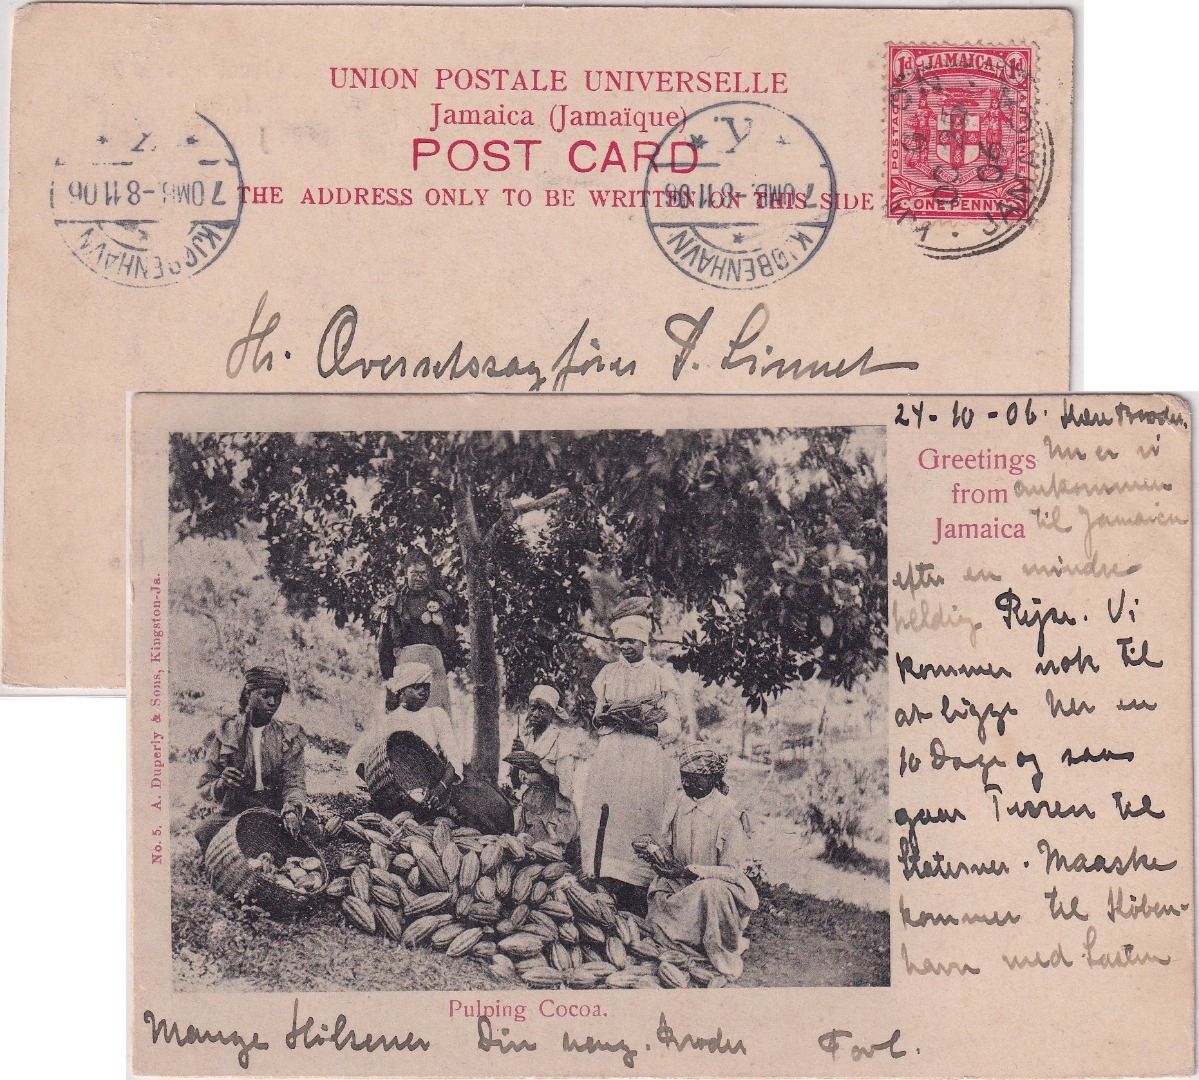 UNION POSTALE UNIVERSELLE
Jamaica (Jamaïque)
POST CARD
THE ADDRESS ONLY TO BE WRITTEN ON THIS SIDE
1d JAMAICA 1d
POSTAGE
ONE PENNY
KINGSTON
OC 25
06
JAMAICA
KJØBENHAVN
7 OMB. -8.11.06
KJØBENHAVN
7 OMB. -8.11.06
Hr. Oversetssagfører P. Linnet
24-10-06. Kære Broder.
Greetings
from
Jamaica
Nu er vi
ankommen
til Jamaica
efter en mindre
heldig Rejse. Vi
kommer nok til
at ligge her en
10 Dage og saa
gaar Turen til
Staterne. Maaske
kommer til Køben-
havn med Lasten
No. 5. A. Duperly & Sons, Kingston-Ja.
Pulping Cocoa.
Mange Hilsener Din heng. Broder